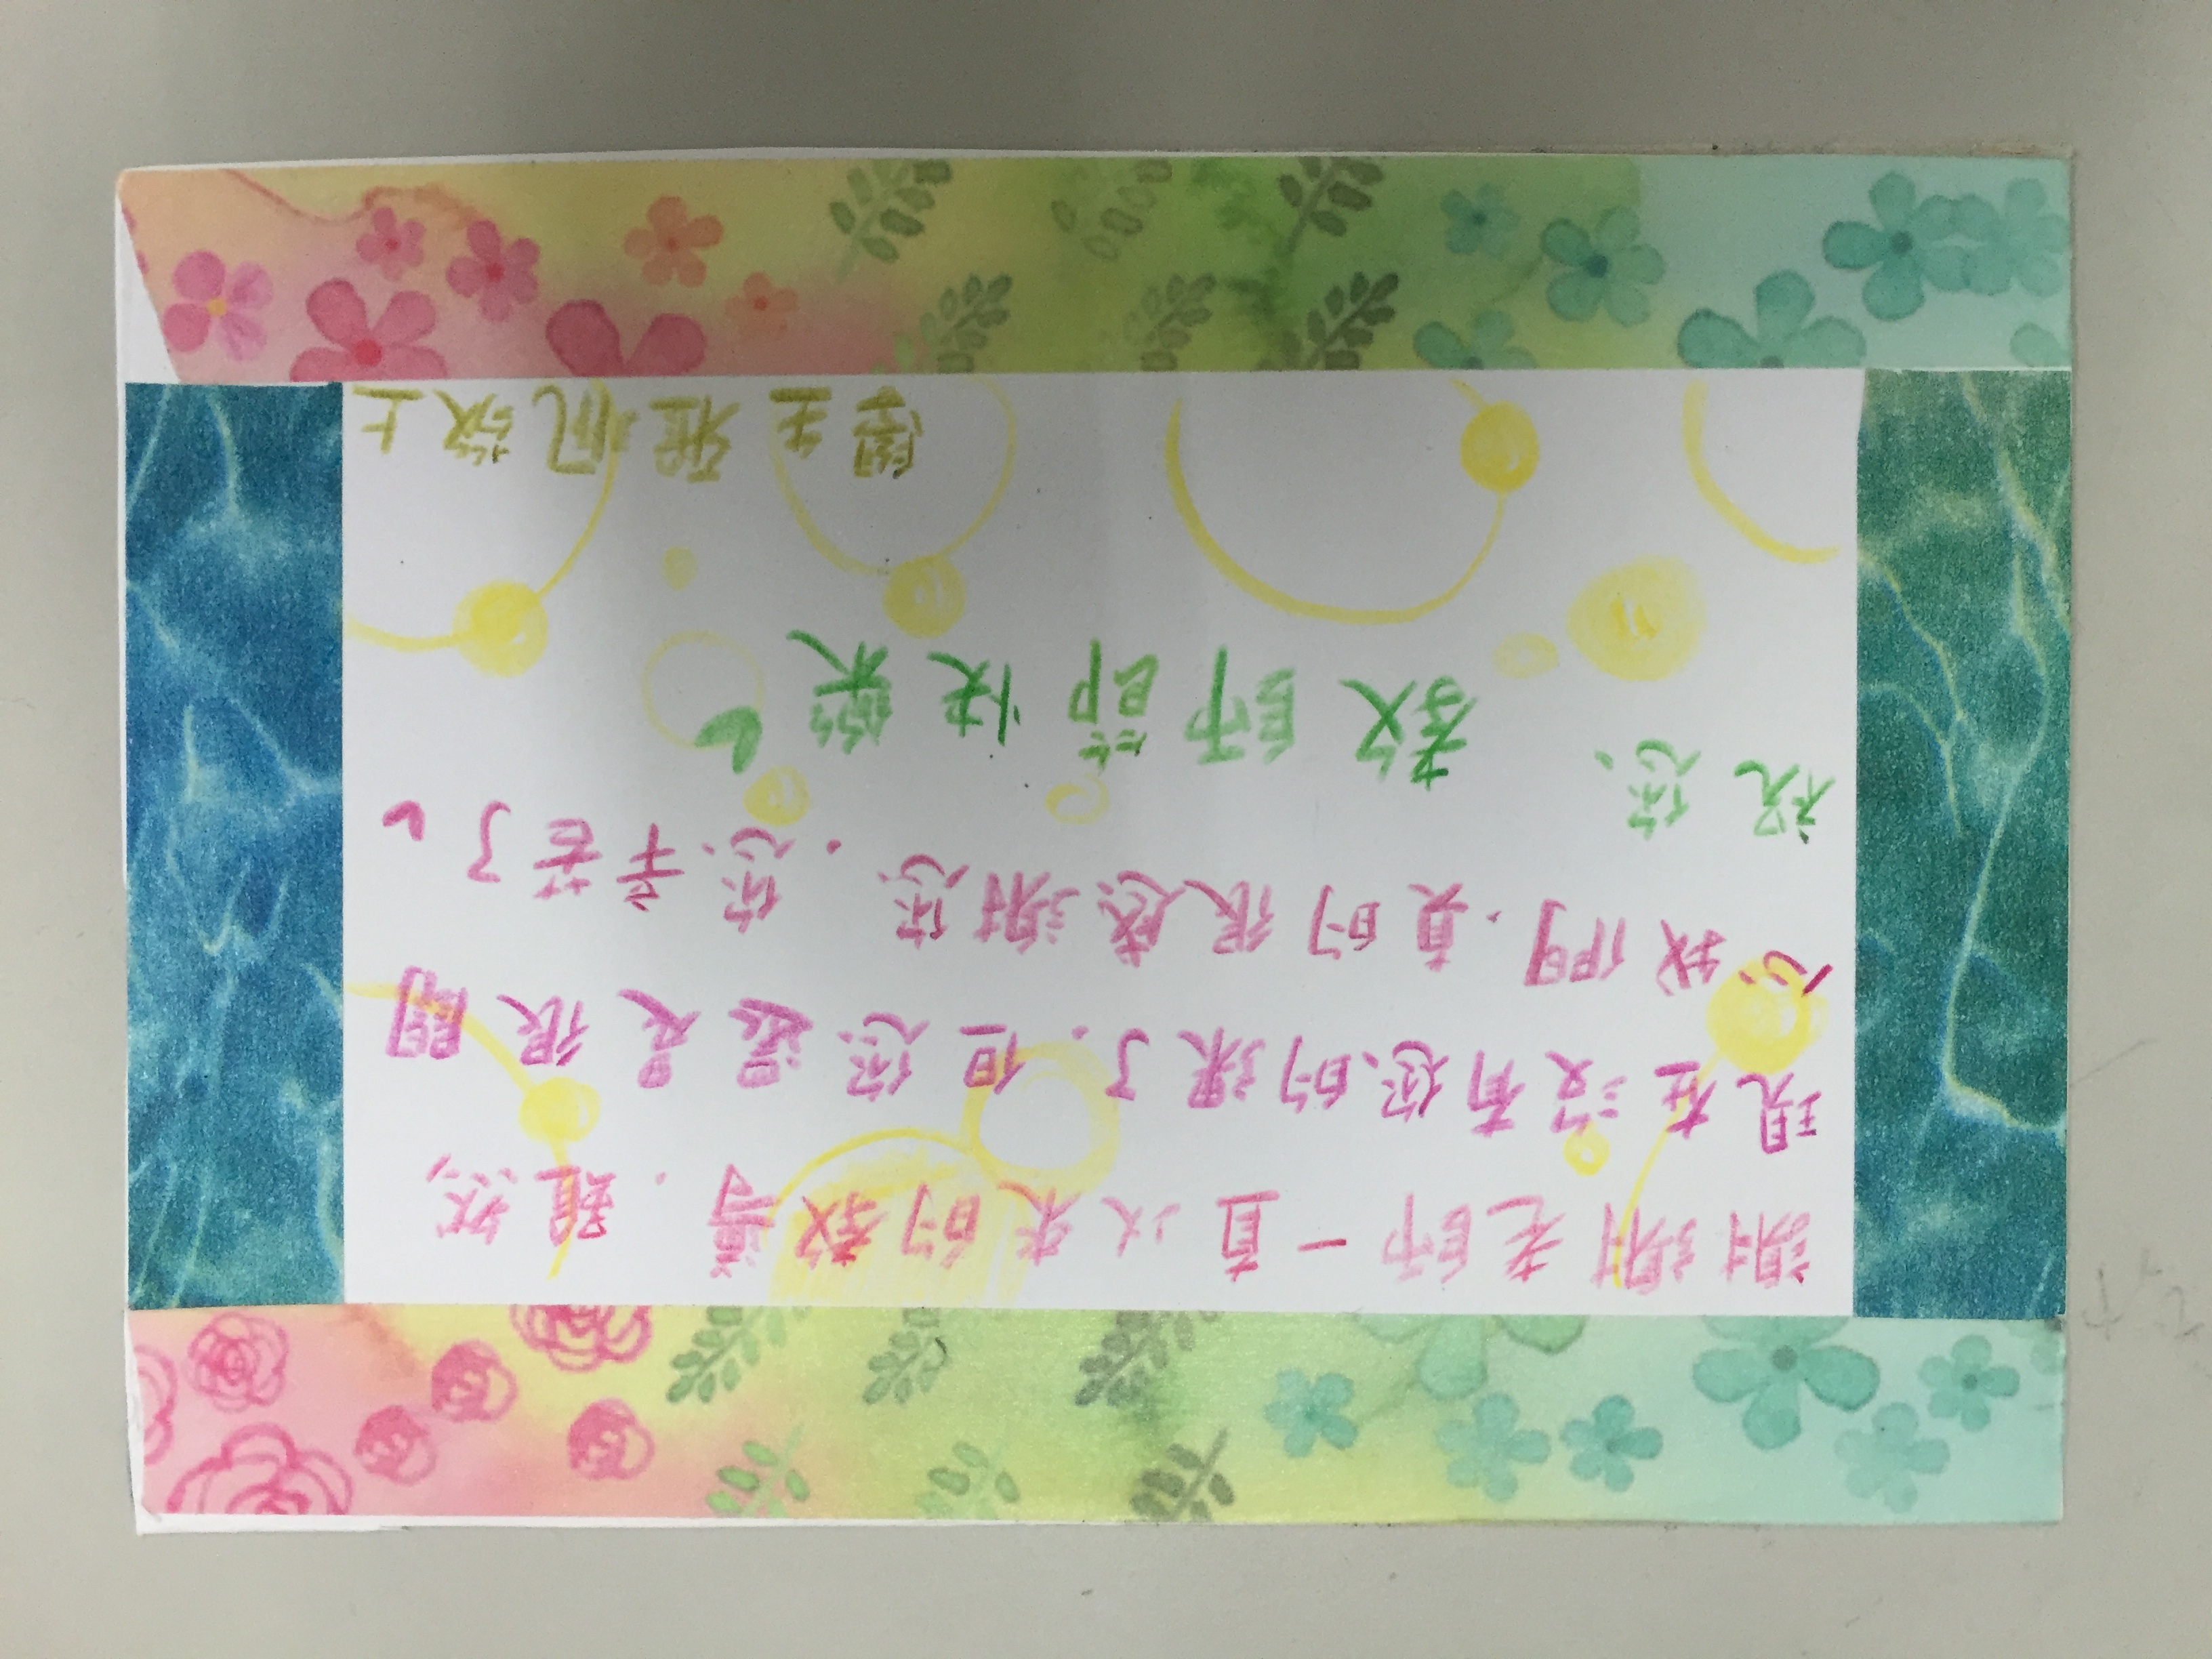 謝謝老師一直以來的教導，雖然
現在沒有您的課了，但您還是很關
心我們，真的很感謝您，您辛苦了！
祝您
教師節快樂！
學生雅敬上